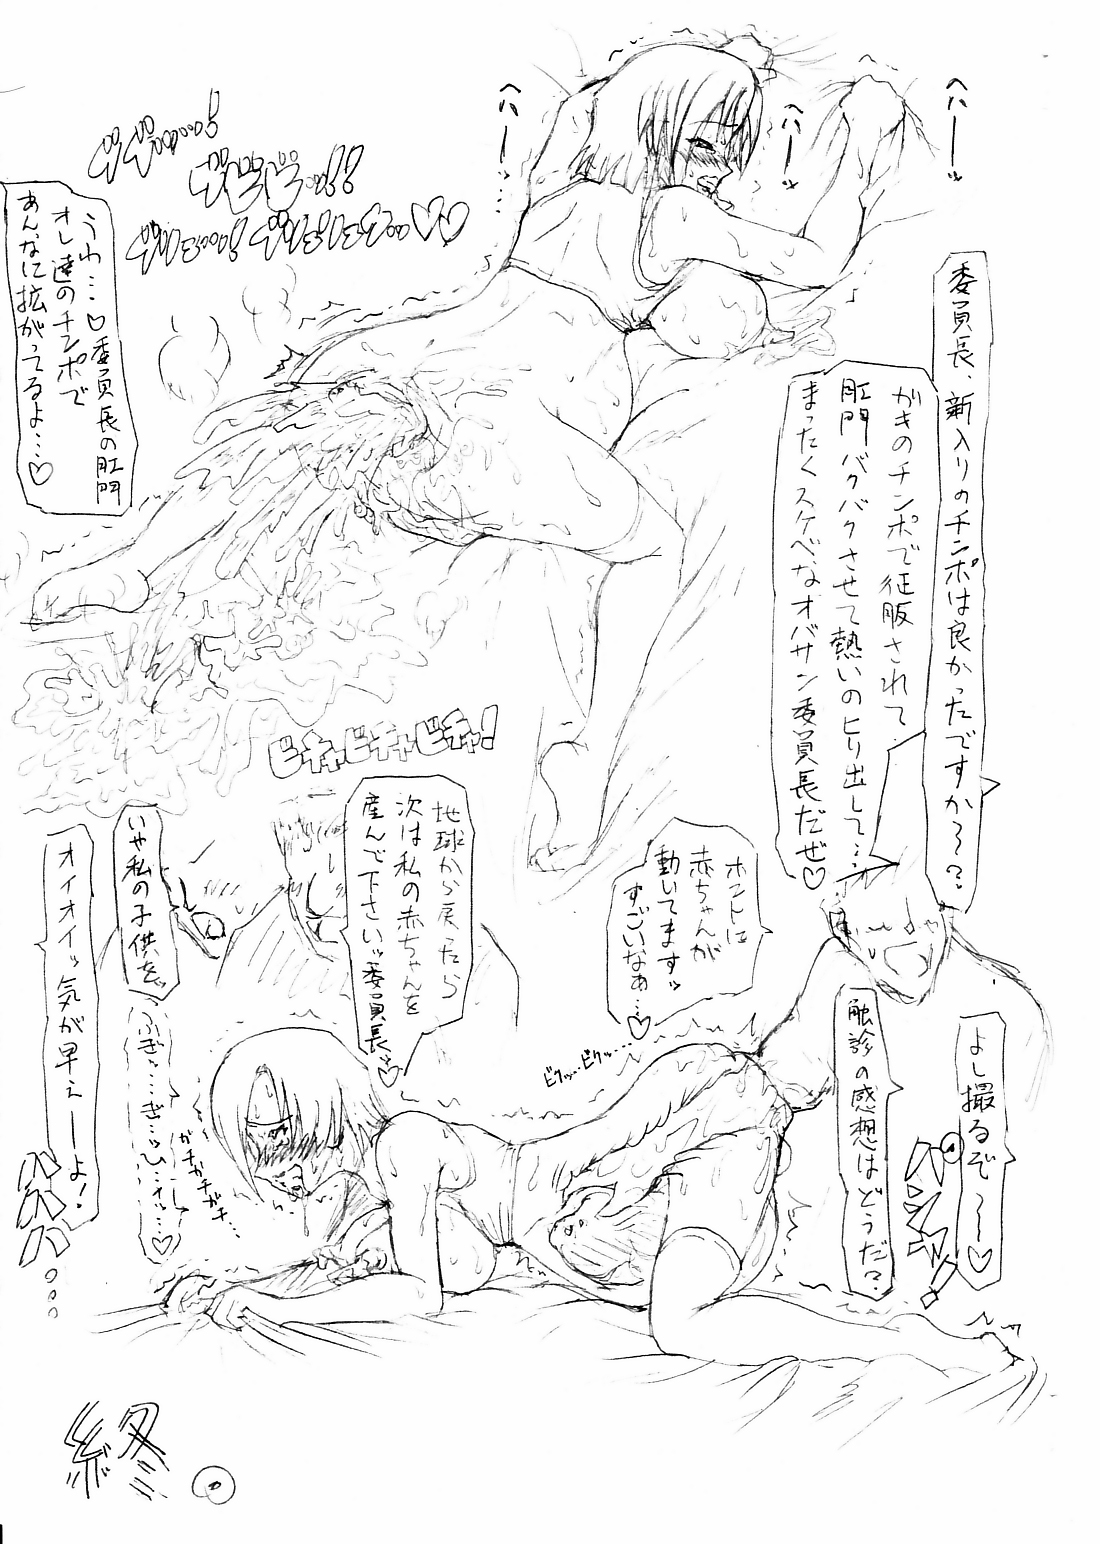 ヘハーッ
ヘハーッ
ヘハーッ…
委員長、新入りのチンポは良かったですか〜？
がきのチンポで征服されて
肛門バクバクさせて熱いのヒリ出して…
まったくスケベなオバサン委員長だぜ♡
うわ…♡委員長の肛門
オレ達のチンポで
あんなに拡がってるよ…♡
ビチャビチャビチャ！
ホントに
赤ちゃんが
動いてますッ
すごいなぁ…♡
ビクッ…ビクッ…
触診の感想はどうだ？
よし撮るぞ〜〜♡
地球から戻ったら
次は私の赤ちゃんを
産んで下さいッ委員長♡
いや私の子供をッ
オイオイッ気が早えーーよ！
ハハハ
ガチガチガチ…
終